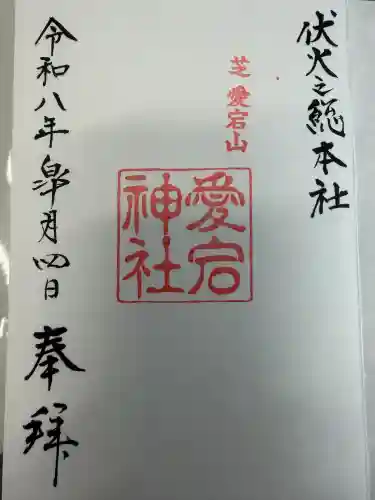 伏火之総本社
芝愛宕山
愛宕
神社
令和八年皐月四日
奉拝